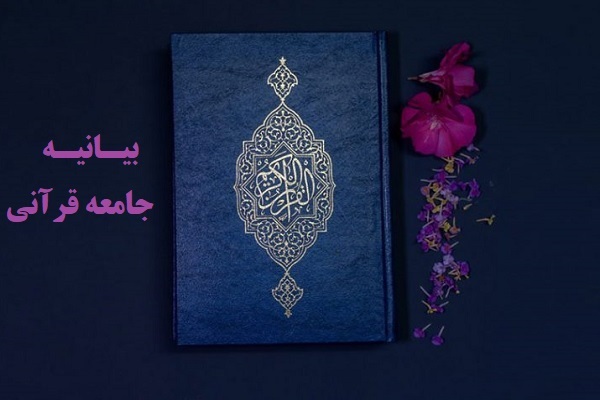 بیــانیــه
جامعه قرآنی
القرآن الكريم